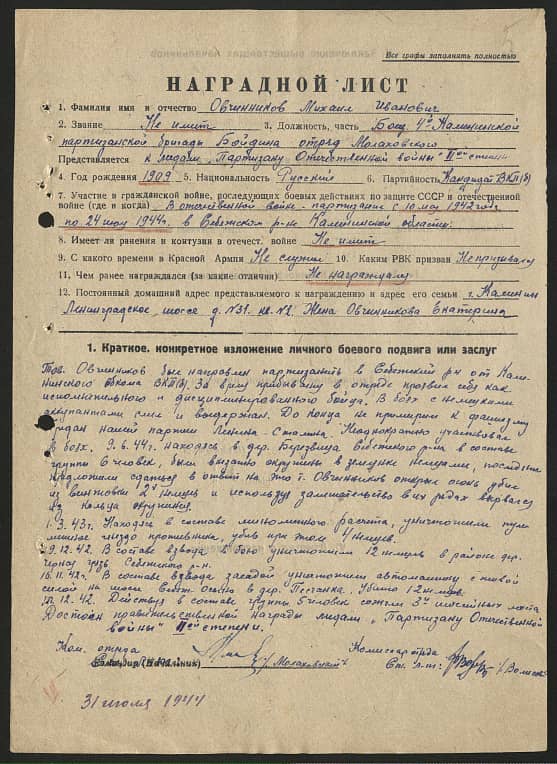 Все графы заполнять полностью
НАГРАДНОЙ ЛИСТ
1. Фамилия имя и отчество Овчинников Михаил Иванович
2. Звание Не имеет 3. Должность, часть Боец 4й Калининской
партизанской бригады Бойдина отряд Молаховского
Представляется к медали „Партизану Отечественной войны" IIой степени
4. Год рождения 1909 5. Национальность Русский 6. Партийность Кандидат ВКП(б)
7. Участие в гражданской войне, последующих боевых действиях по защите СССР и отечественной
войне (где и когда) В отечественной войне - партизание с 10 мая 1942 года
по 24 июля 1944г. в Себежском р-не Калининской области.
8. Имеет ли ранения и контузии в отечест. войне Не имеет
9. С какого времени в Красной Армии Не служил 10. Каким РВК призван Не призывался
11. Чем ранее награждался (за какие отличия) Не награждался
12. Постоянный домашний адрес представляемого к награждению и адрес его семьи г. Калинин
Ленинградское шоссе д. №31. кв. №2 Жена Овчинникова Екатерина
1. Краткое, конкретное изложение личного боевого подвига или заслуг
Тов. Овчинников был направлен партизанить в Себежский р-н от Кали-
нинского обкома ВКП(б). За время пребывания в отряде проявил себя как
исполнительного и дисциплинированного бойца. В боях с немецкими
оккупантами смел и выдержан. До конца не примирим к фашизму
предан нашей партии Ленина-Сталина. Неоднократно участвовал
в боях. 9.6.44г. находясь в дер. Березвица Себежского р-на в составе
группы 6 человек, были внезапно окружены в землянке немцами, последние
предложили сдаться в ответ на это т. Овчинников открыл огонь убив
из винтовки 2х немцев и используя замешательство в их рядах вырвался
из кольца окружения.
1.3.43г. Находясь в составе минометного расчета, уничтожили пуле-
метное гнездо противника, убив при этом 4 немцев.
19.12.42. В составе взвода в бою уничтожили 12 немцев в районе дер.
Черная грязь Себежского р-н.
16.11.42г. В составе взвода засадой уничтожили автомашину с живой
силой на шоссе Себеж Опочка в дер. Песчанка. Убито 12 немцев.
12.42. Действуя в составе группы 5 человек сожгли 3 шоссейных моста
Достоин правительственной награды медали „Партизану Отечественной
войны" IIой степени.
Ком. отряда
Командир (Начальник) /Молаховский/
Комиссар отряда
Ст. л-т:
31 июля 1944